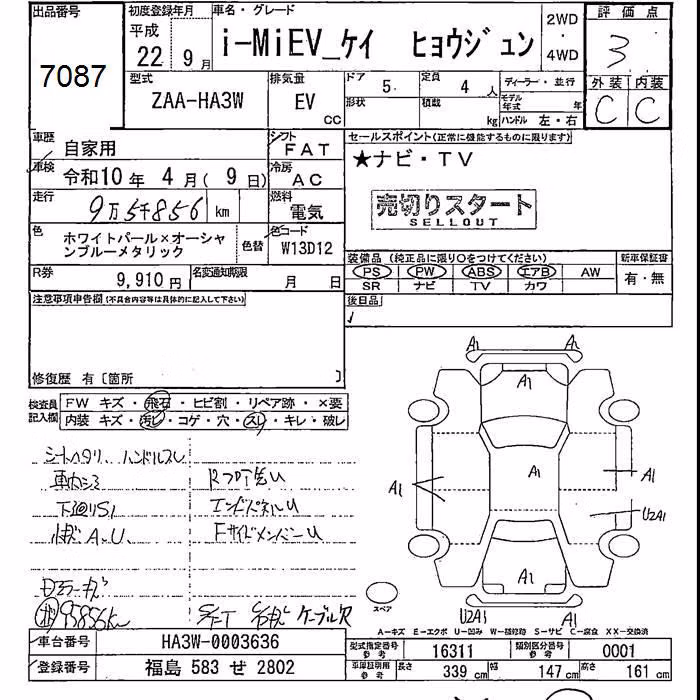 出品番号
7087
初度登録年月
平成
22 9月
車名・グレード
i-MiEV_ケイ ヒョウジュン
2WD
・
4WD
評価点
3
外装 内装
C C
型式
ZAA-HA3W
排気量
EV
CC
ドア 5
形状
定員 4人
積載 kg
ディーラー・並行
モデル年式 年
ハンドル 左・右
車歴
自家用
シフト
FAT
車検
令和10年 4月( 9日)
冷房
AC
走行
9万5千856 km
燃料
電気
色
ホワイトパール×オーシャ
ンブルーメタリック
色替
色コード
W13D12
R券
9,910円
名変通知期限
月 日
セールスポイント(正常に機能するものに限ります)
★ナビ・TV
売切りスタート
SELLOUT
装備品 (純正品に限り○をつけてください)
新車保証書
PS PW ABS エアB AW
SR ナビ TV カワ
有・無
後日品
注意事項申告欄(不具合内容等は具体的に記入して下さい)
修復歴 有〔箇所 〕
検査員
記入欄
FW キズ・飛石・ヒビ割・リペア跡・×要
内装 キズ・汚レ・コゲ・穴・スレ・キレ・破レ
シートヘタリ、ハンドルスレ
下廻りS1
A.U.
エンドパネルU
FサイドメンバーU
95856km
ケーブル欠
A1 A1
A1
A1
A1
A1
U2A1
A1
U2A1 A1
スペア
A-キズ E-エクボ U-凹み W-補修跡 S-サビ C-腐食 XX-交換済
車台番号
HA3W-0003636
登録番号
福島 583 ぜ 2802
型式指定番号
参考
16311
類別区分番号
参考
0001
車庫証明用
参考
長さ 339 cm 幅 147 cm 高さ 161 cm